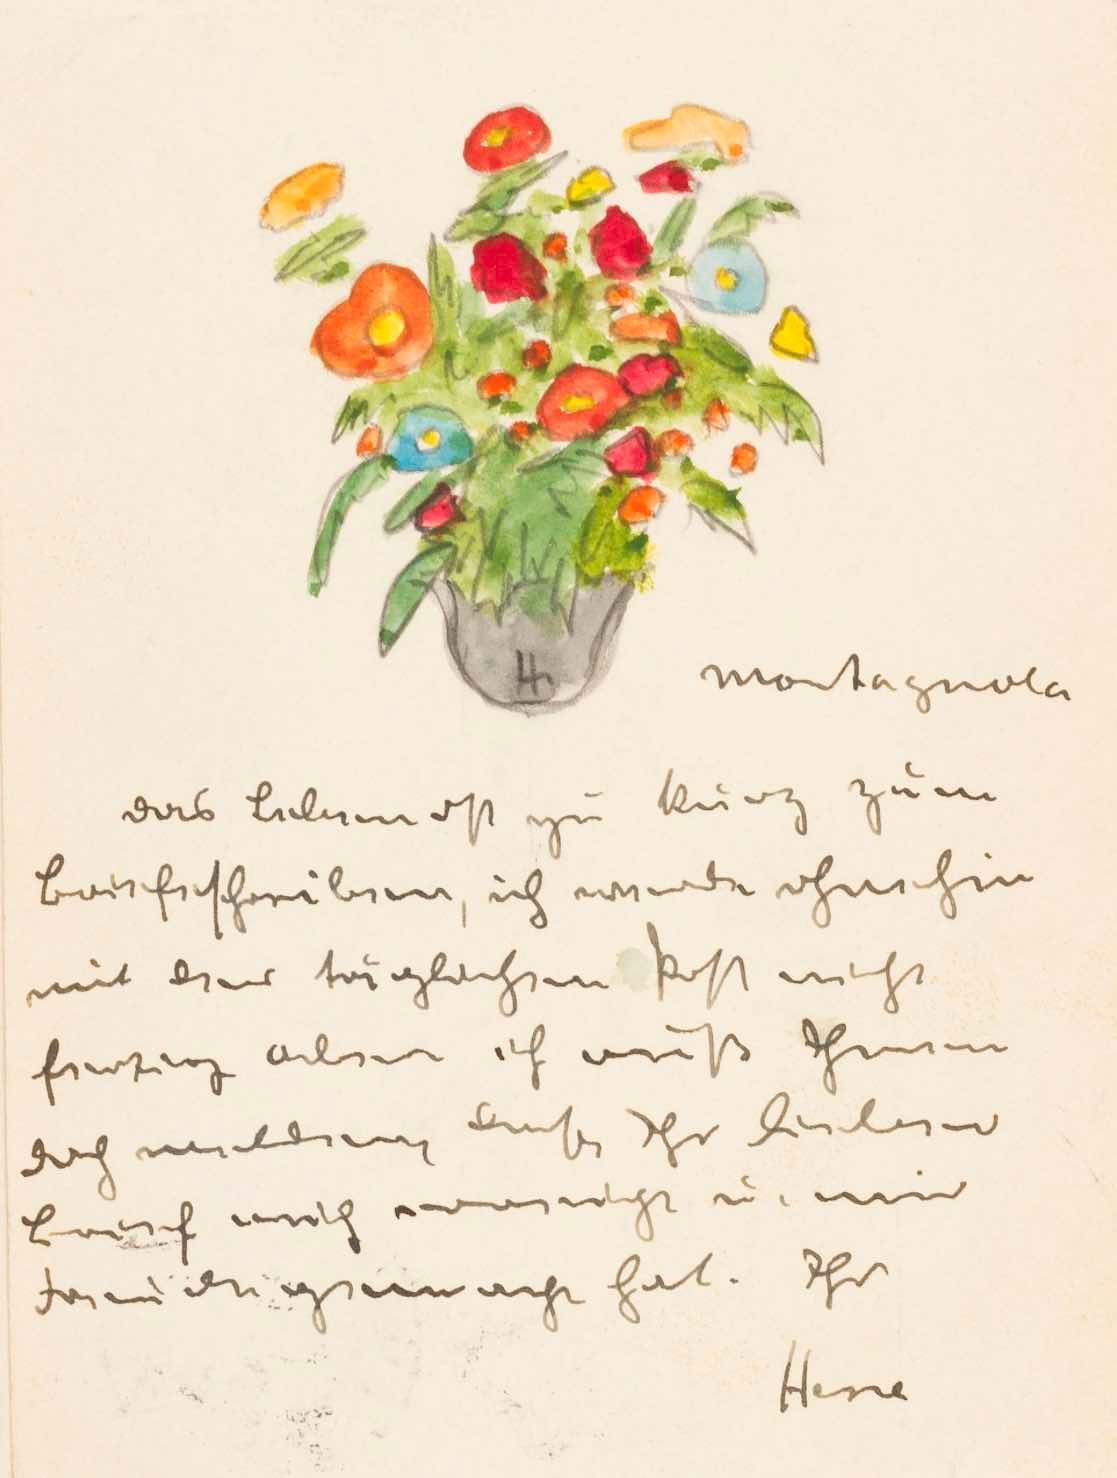 H
Montagnola
das Leben ist zu kurz zum
Briefschreiben, ich werde ohnehin
mit der täglichen Post nicht
fertig aber ich muß Ihnen
doch melden, dass Ihr lieber
Brief mich erreicht u. mir
Freude gemacht hat. Ihr
Hesse